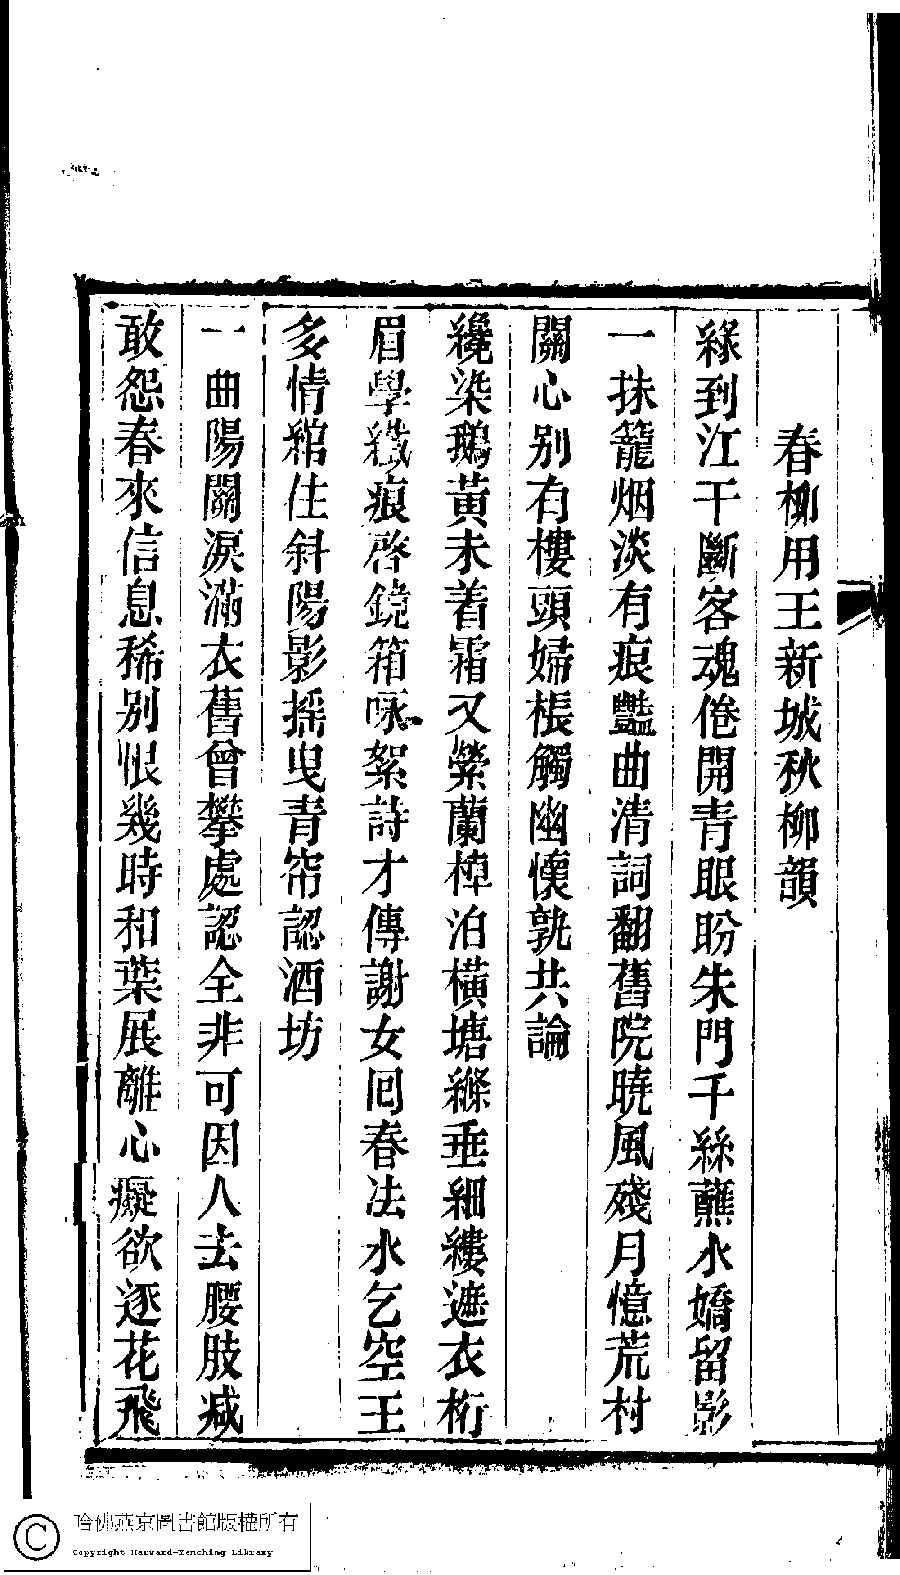 春柳用王新城秋柳韻
綠到江干斷客魂倦開青眼盼朱門千絲蘸水嬌留影
一抹籠烟淡有痕豔曲清詞翻舊院曉風殘月憶荒村
關心别有樓頭婦棖觸幽懷孰共論
纔染鵝黃未着霜又縈蘭棹泊橫塘絲垂細縷遮衣桁
眉學纖痕啓鏡箱咏絮詩才傳謝女回春法水乞空王
多情綰住斜陽影揺曳青帘認酒坊
一曲陽關淚滿衣舊曾攀處認全非可因人去腰肢减
敢怨春來信息稀别恨幾時和葉展離心癡欲逐花飛
哈佛燕京圖書館版權所有
Copyright Harvard-Yenching Library